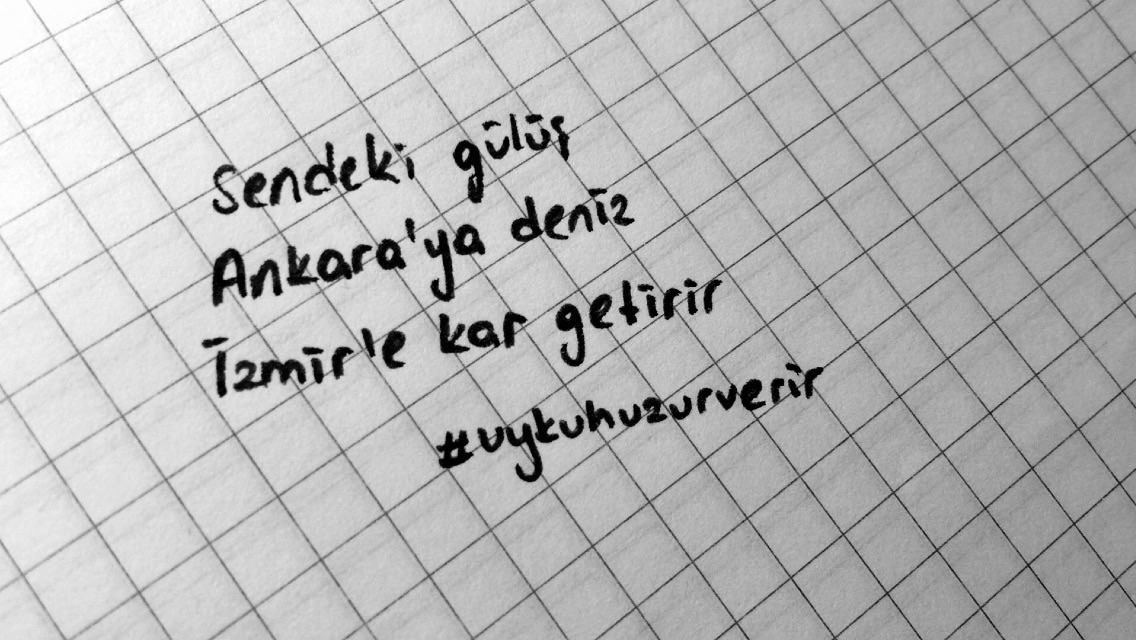 Sendeki gülüş
Ankara'ya deniz
İzmir'e kar getirir
#uykuhuzurverir